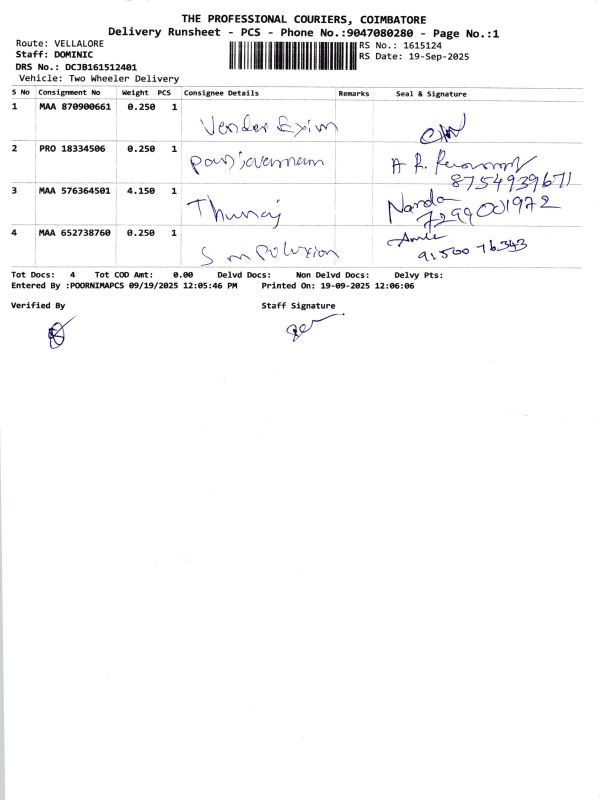 THE PROFESSIONAL COURIERS, COIMBATORE
Delivery Runsheet - PCS - Phone No.:9047080280 - Page No.:1
Route: VELLALORE
RS No.: 1615124
Staff: DOMINIC
RS Date: 19-Sep-2025
DRS No.: DCJB161512401
Vehicle: Two Wheeler Delivery
S No Consignment No Weight PCS Consignee Details Remarks Seal & Signature
1 MAA 870900661 0.250 1 Vendor Exim
2 PRO 18334506 0.250 1 A R.
8754939671
3 MAA 576364501 4.150 1 Thuraj Nanda
7299001972
4 MAA 652738760 0.250 1 S m
91500 76343
Tot Docs: 4 Tot COD Amt: 0.00 Delvd Docs: Non Delvd Docs: Delvy Pts:
Entered By :POORNIMAPCS 09/19/2025 12:05:46 PM Printed On: 19-09-2025 12:06:06
Verified By Staff Signature